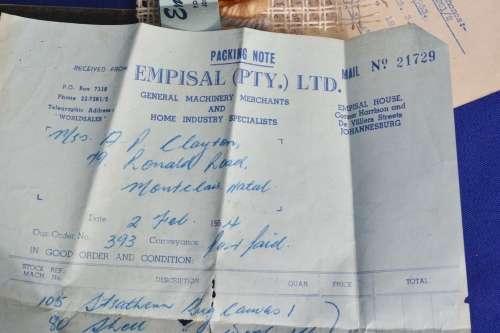 PACKING NOTE
RECEIVED FROM
EMPISAL (PTY.) LTD.
MAIL Nº 21729
P.O. Box 7338
Phone 22-7261/5
Telegraphic Address
"WORLDSALES"
GENERAL MACHINERY MERCHANTS
AND
HOME INDUSTRY SPECIALISTS
EMPISAL HOUSE,
Corner Harrison and
De Villiers Streets
JOHANNESBURG
A P Clayton,
Ronald Road,
Montclair Natal.
Date 2 Feb. 1954
Our Order No. 393 Conveyance Post paid.
IN GOOD ORDER AND CONDITION:
STOCK REF. MACH. No. DESCRIPTION QUAN PRICE TOTAL
105 Strathern Canvas 1
80